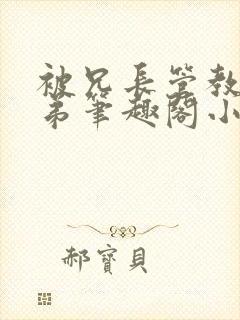 被兄長管教
弟筆趣閣小
郝寶貝